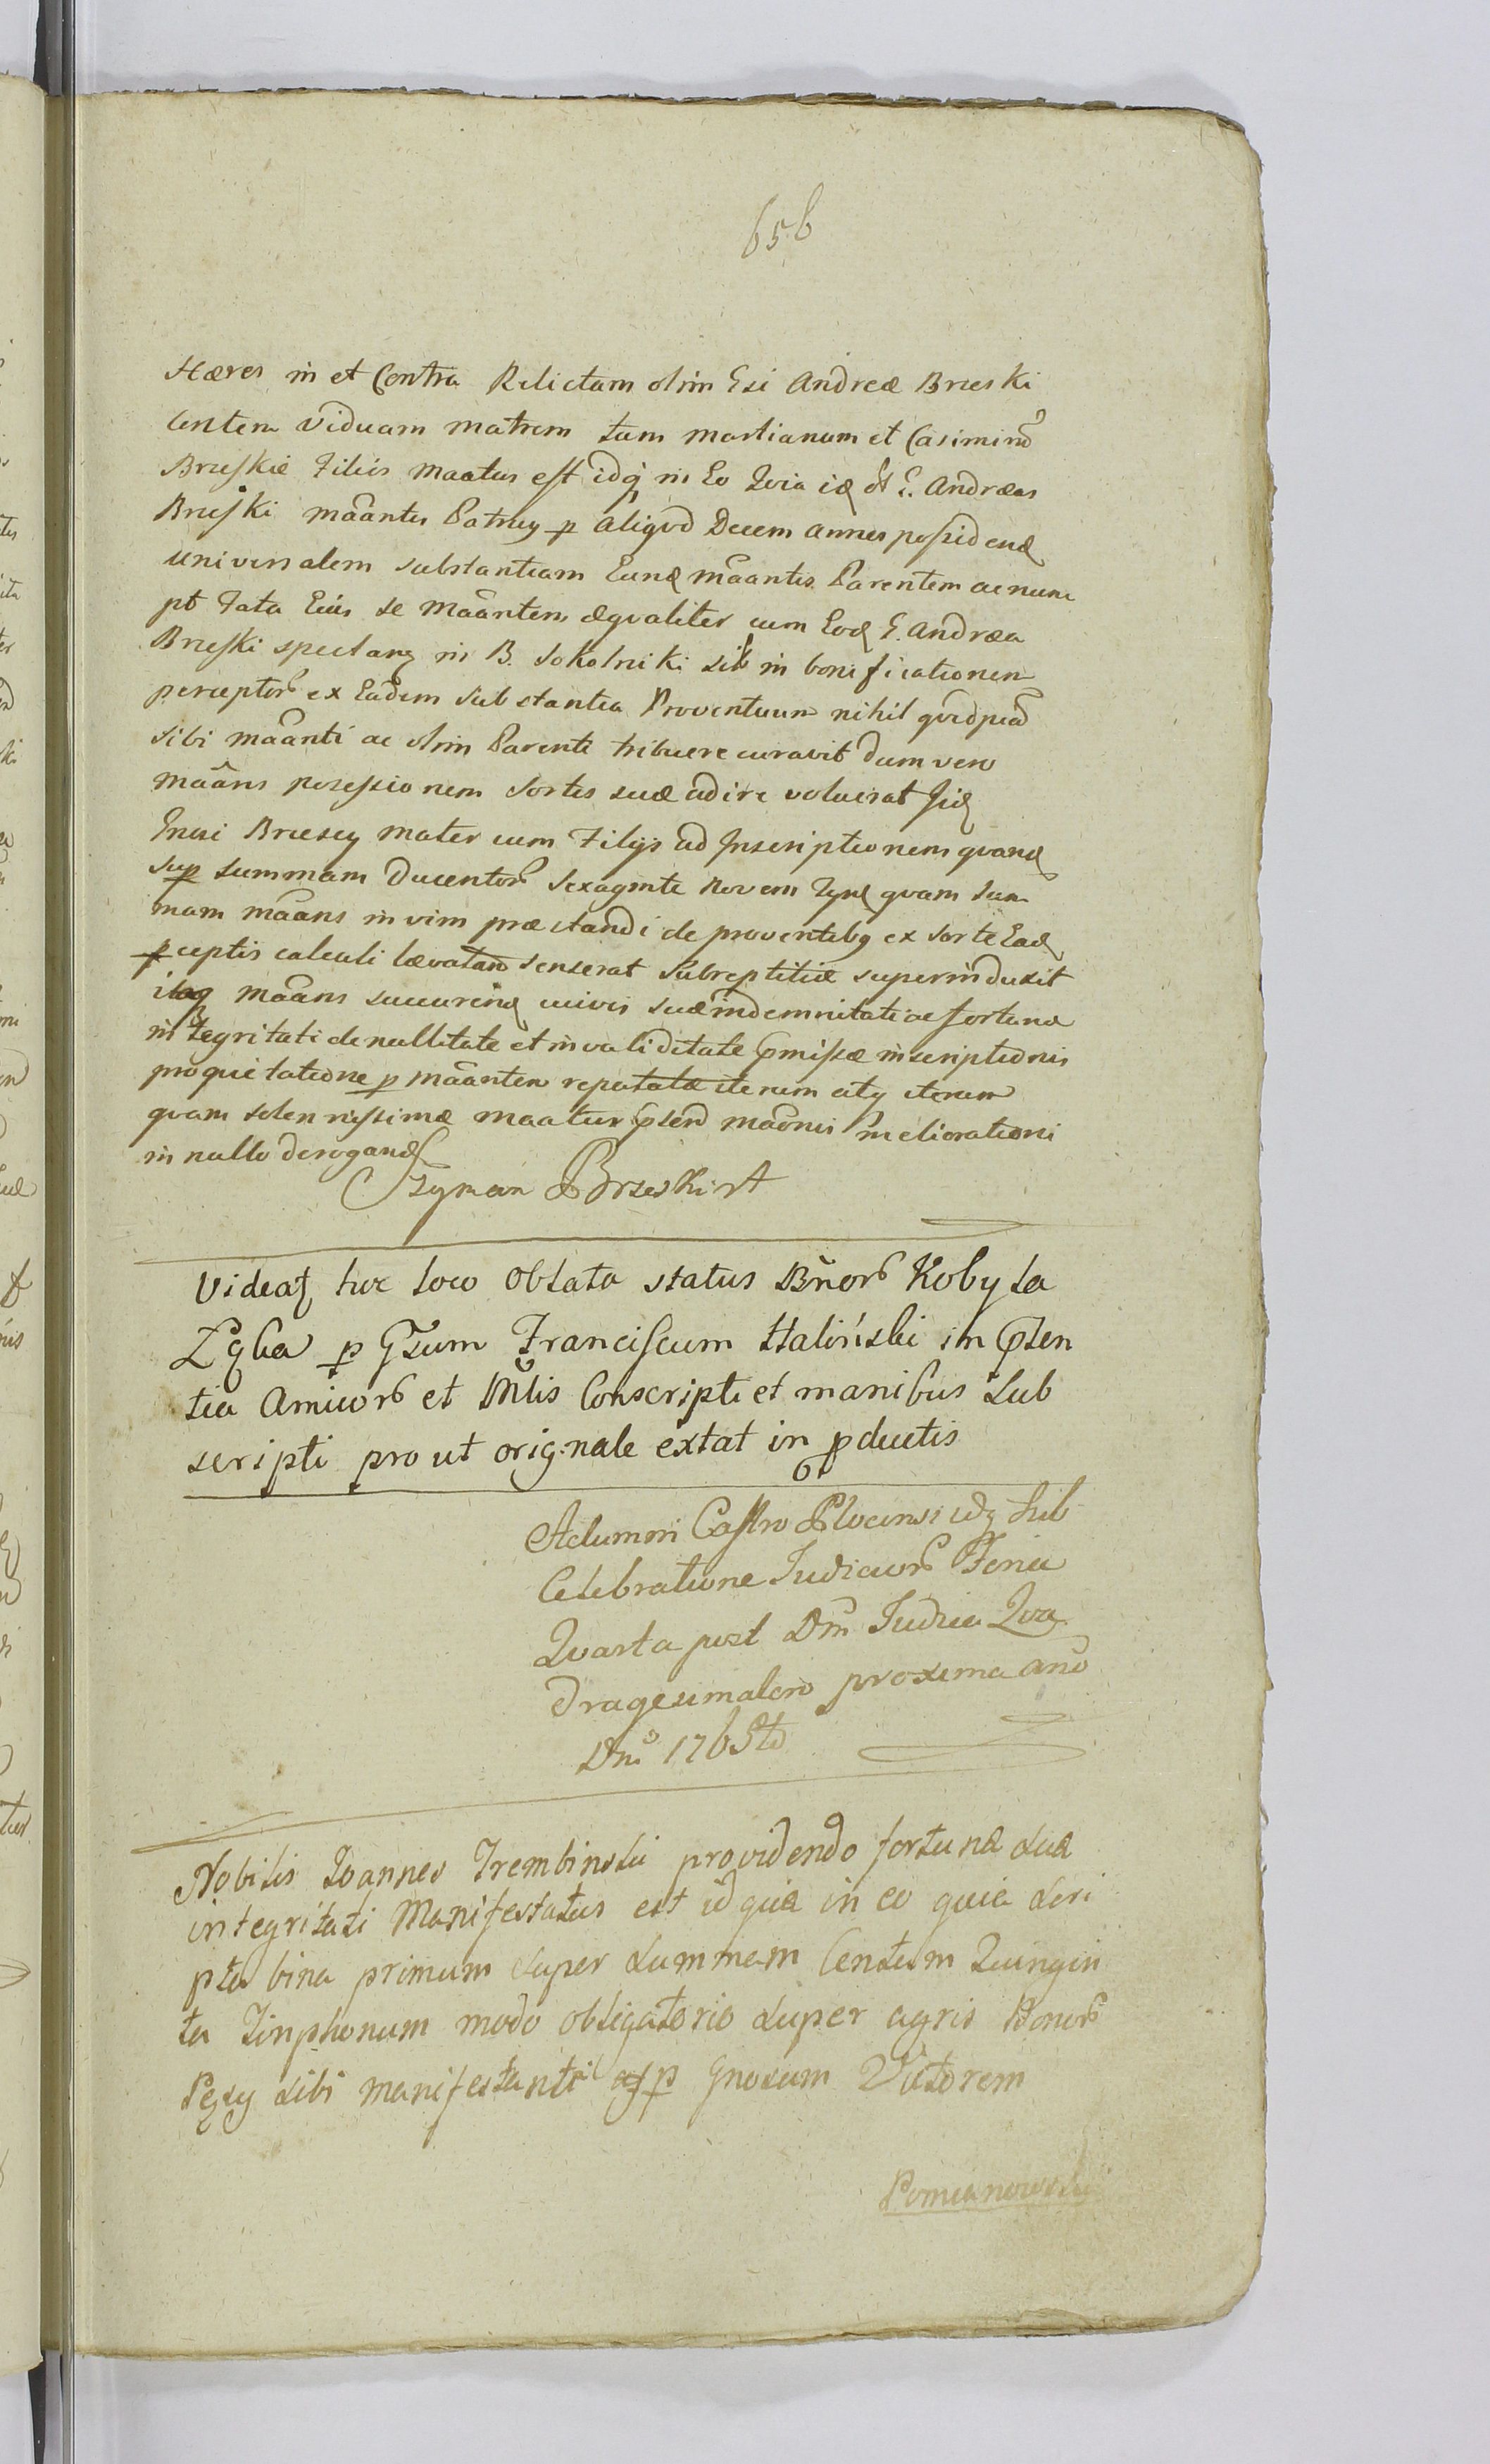 656
Hæres in et Contra Relictam olim Gsi Andreæ Brzeski
Consortem Viduam matrem tum Martianum et Casimirũ
Brzeskie Filiis maātus est idq; in Eo Qvia id ol G. Andræas
Brzeski maāntis Patruy p aliqvod Decem annos possidend
universalem substantiam Eund maāntis Parentem ac nunc
pt fata Eius se maāntem æqvaliter cum Eod G. Andræa
Brzeski spectanz in B. Sokolniki sibi in bonificationem
perceptor ex Eadem substantia Proventuum nihil qvidpiã
sibi maānti ac olim Parenti tribuere curavit dum vero
maāns possessionem sortis suæ adire voluerat Jid
Gnosi Brzescy mater cum Filijs ad Inscriptionem qvand
sup summam Ducentor sexaginta Novem Tynf qvam sum
mam maāns in vim præstandi de proventibq ex sorte Ead
pceptis calculi lævatam senserat subreptitiæ superinduxit
itaq maāns succurend cuivis suæ indemnitati ac fortunæ
integritati de nullitate et invaliditate pmissæ inscriptionis
pro quietatione p maāntem reputatæ iterum atq iterum
qvam solennissimæ maatur psend maōnis meliorationi
in nullo derogand
Szymon Brzeski
Videaţ hoc loco Oblata status Bñor Kobyla
Łąka p Gsum Franciscum Staliński in psen
tia Amicor et Mlis Conscripti et manibus Sub
scripti pro ut originale extat in pductis
Actum in Castro Plocensi idq Sub
Celebratione Iudicior Feria
Qvarta post Dm̃ Iudica Qva
dragesimalem proxima anõ
Dnĩ 1765to
Nobilis Ioannes Trembinski providendo fortunæ suæ
integritati Manifestatus est idque in eo quia Scri
pta bina primum super summam Centum Quingin
ta Tinphonum modo obligatorio super agris Bonor
Pęsy sibi manifestanti p Gnosum Victorem
Pomianowski